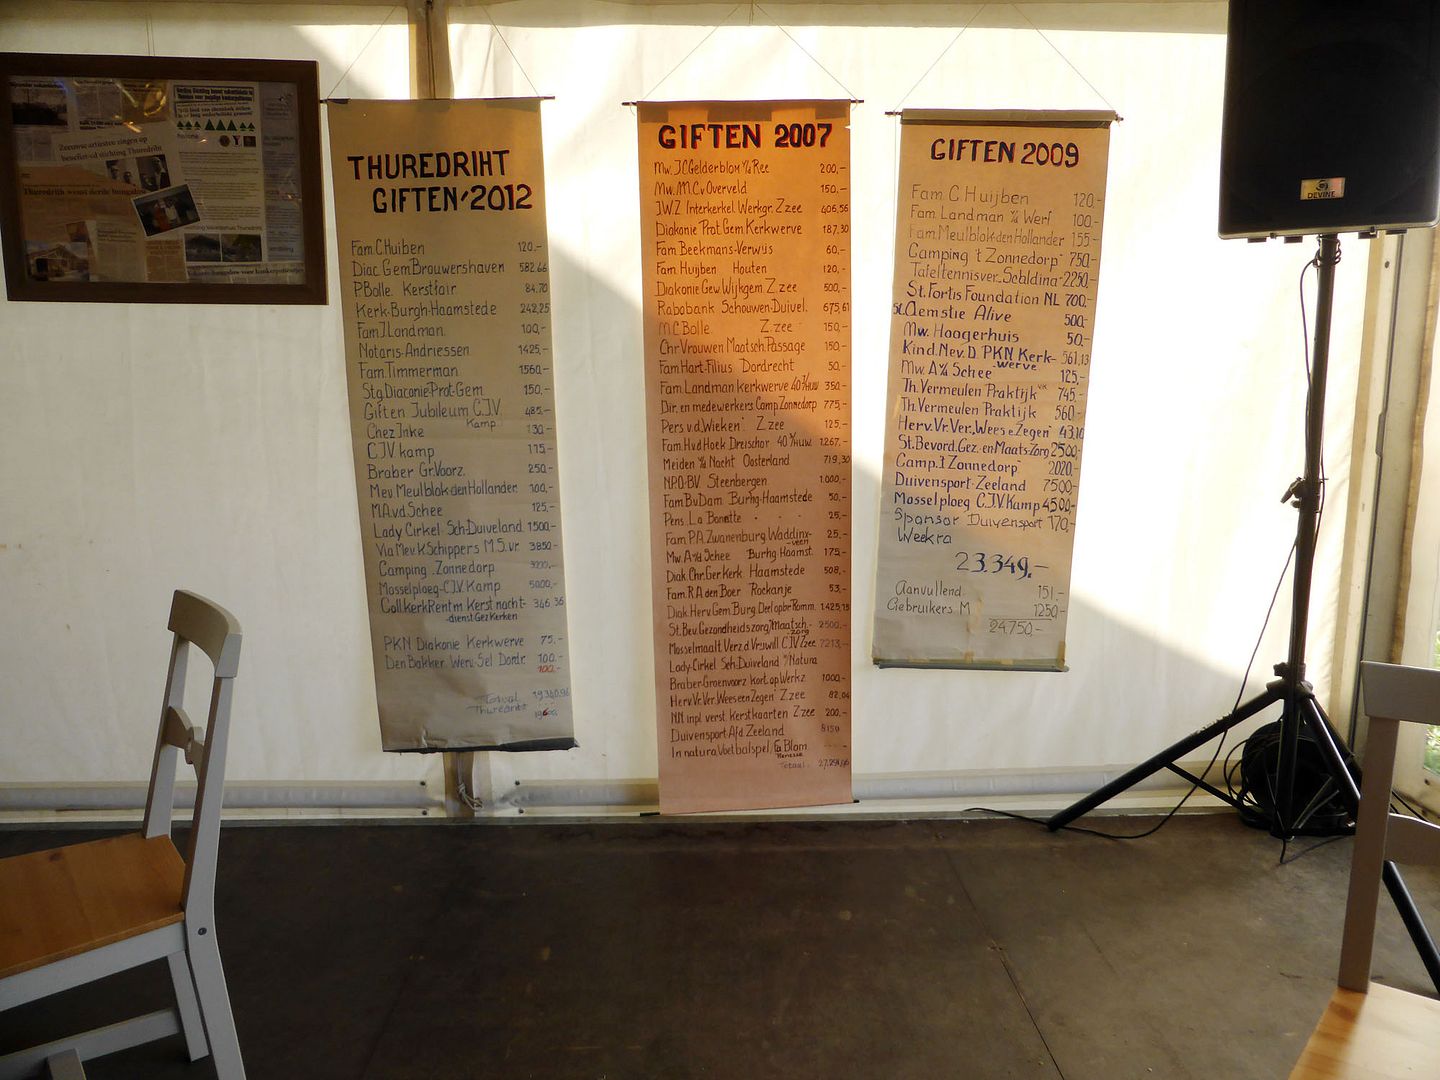 Zeeuwse artiesten zingen op
benefiet cd stichting Thuredrith
Thuredrith wenst derde bungalow
THUREDRIHT
GIFTEN 2012
Fam. C. Huiben 120.-
Diac Gem Brouwershaven 582.66
P. Bolle Kerstfair 84.70
Kerk-Burgh-Haamstede 242,25
Fam J. Landman. 100,-
Notaris-Andriessen 1425,-
Fam. Timmerman 1560.-
Stg Diaconie-Prot-Gem 150.-
Giften Jubileum C.J.V. 485.-
Kamp.
Chez Inke 130.-
CJV kamp 115.-
Braber Gr. Voorz. 250.-
Mev Meulblok-den Hollander. 100,-
M.A.v.d Schee 125,-
Lady Cirkel Sch-Duiveland 1500.-
Via Mev. K Schippers M.S. vr. 3850.-
Camping. Zonnedorp
Mosselploeg-C.J.V. Kamp 5000.-
Coll. kerk Rentm Kerstnacht- 346.36
-dienst Gez Kerken
PKN Diakonie Kerkwerve 75.-
Den Bakker Werv. Sel Dordr. 100.-
100.-
Totaal 19340.96
Thuredriht
GIFTEN 2007
Mw. J.C Gelderblom v/d Ree 200,-
Mw. M.C v Overveld 150.-
J.W.Z Interkerkel. Werkgr. Z.zee 406,56
Diakonie Prot. Gem. Kerkwerve 187.30
Fam Beekmans-Verwijs 60,-
Fam. Huijben Houten 120,-
Diakonie Gew. Wijkgem. Z.zee 500,-
Rabobank Schouwen-Duivel. 675,61
M.C Bolle Z.zee 150,-
Chr Vrouwen Maatsch. Passage 150-
Fam Hart-Filius Dordrecht 50,-
Fam. Landman kerkwerve 40 J/HUW 350-
Dir. en medewerkers Camp Zonnedorp 775,-
Pers v.d, Wieken Z.zee 125.-
Fam. H.v d Hoek Dreischor 40 J/HUW 1.267.-
Meiden v/d Nacht Oosterland 719,30
N.P.O-B.V. Steenbergen 1.000.-
Fam B.v Dam Burhg-Haamstede 50,-
Pens. La Bonette 25,-
Fam. P.A. Zwanenburg. Waddinx- 25.-
veen
Mw. A v/d Schee Burhg Haamst. 175-
Diak Chr. Ger Kerk Haamstede 508,-
Fam. R.A den Boer Rockanje 53,-
Diak Herv. Gem. Burg. Deel opbr Romm. 1.425,15
St. Bev. Gezondheidszorg/Maatsch.- 2500.-
zorg
Mosselmaalt. Verz d Vrijwill CJV Zzee 7213.-
Lady-Cirkel Sch-Duiveland i/Natura
Braber-Groenvoorz kort op Werkz 1000,-
Herv. Vr. Ver. Wees een Zegen Z.zee 82,04
N.N inpl verst kerstkaarten Z.zee 200,-
Duivensport Afd Zeeland 8150
In natura Voetbalspel, Fa Blom
Renesse
Totaal. 27.291,96
GIFTEN 2009
Fam C. Huijben 120.-
Fam. Landman v/d Werf 100-
Fam. Meulblok-den Hollander 155-
Camping 't Zonnedorp 750,-
Tafeltennisver. Scaldina 2250,-
St. Fortis Foundation NL 700,-
St. Clemstie Alive 500-
Mw. Hoogerhuis 50.-
Kind. Nev. D. PKN Kerk- 561,13
werve
Mw. A v/d Schee 125,-
Th. Vermeulen Praktijk 745,-
Th. Vermeulen Praktijk 560-
Herv. Vr. Ver. Wees e Zegen 43,10
St. Bevord. Gez. en Maats. Zorg 2500-
Camp. 't Zonnedorp 2020,-
Duivensport-Zeeland 7500-
Mosselploeg C.J.V. Kamp 4500-
Sponsor Duivensport 170,-
Weekra
23.349.-
Aanvullend 151.-
Gebruikers M 1250-
24.750.-
DEVINE